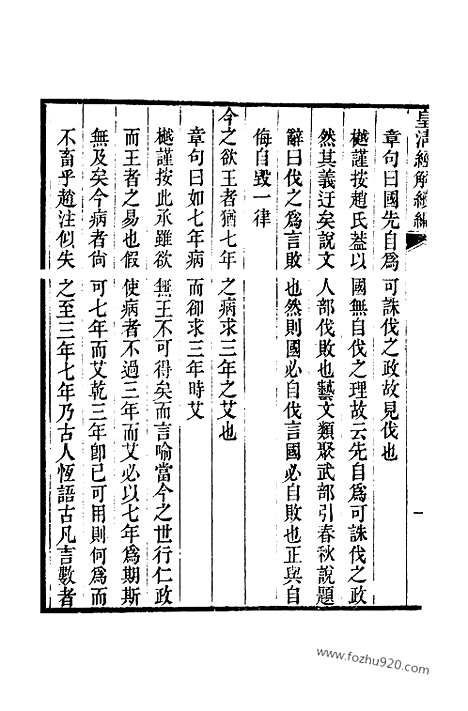 皇清經解續編
一
章句曰國先自爲可誅伐之政故見伐也
樾謹按趙氏葢以國無自伐之理故云先自爲可誅伐之政
然其義迂矣說文人部伐敗也藝文類聚武部引春秋說題
辭曰伐之爲言敗也然則國必自伐言國必自敗也正與自
侮自毀一律
今之欲王者猶七年之病求三年之艾也
章句曰如七年病而卻求三年時艾
樾謹按此承雖欲無王不可得矣而言喻當今之世行仁政
而王者之易也假使病者不過三年而艾必以七年爲期斯
無及矣今病者尙可七年而艾乾三年卽已可用則何爲而
不畜乎趙注似失之至三年七年乃古人恆語古凡言數者
www.fozhu920.com